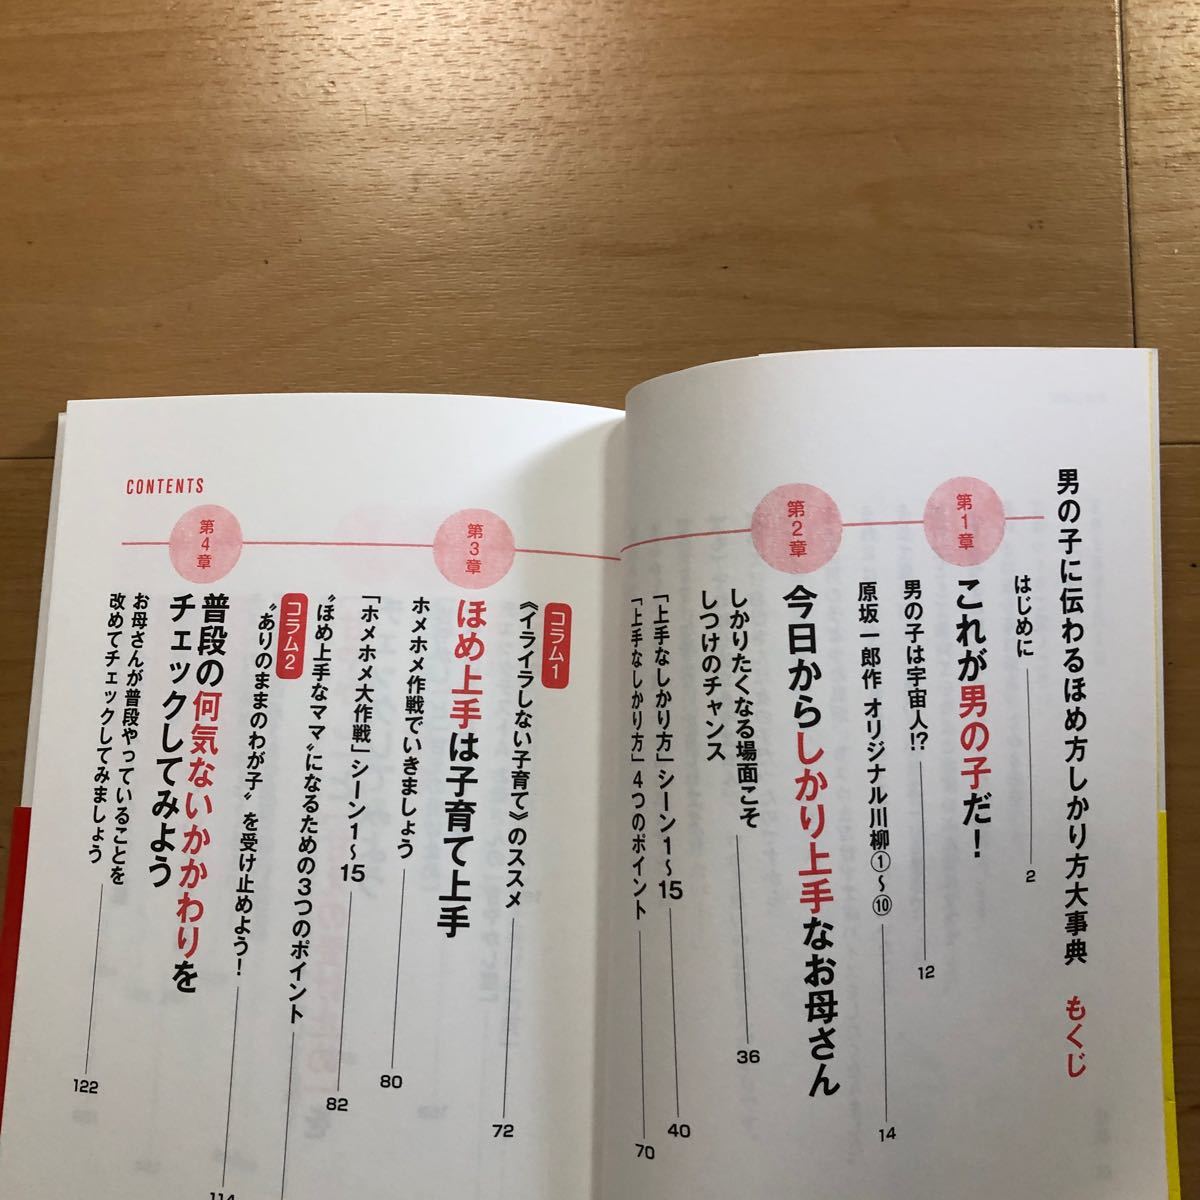 男の子に伝わるほめ方しかり方大事典 もくじ
はじめに
2
第1章
これが男の子だ！
男の子は宇宙人!?
12
原坂一郎作 オリジナル川柳①〜⑩
14
第2章
今日からしかり上手なお母さん
しかりたくなる場面こそ
しつけのチャンス
36
「上手なしかり方」シーン1〜15
40
「上手なしかり方」4つのポイント
70
コラム1
《イライラしない子育て》のススメ
72
CONTENTS
第3章
ほめ上手は子育て上手
ホメホメ作戦でいきましょう
80
「ホメホメ大作戦」シーン1〜15
82
〝ほめ上手なママ〟になるための3つのポイント
コラム2
〝ありのままのわが子〟を受け止めよう！
114
第4章
普段の何気ないかかわりを
チェックしてみよう
お母さんが普段やっていることを
改めてチェックしてみましょう
122